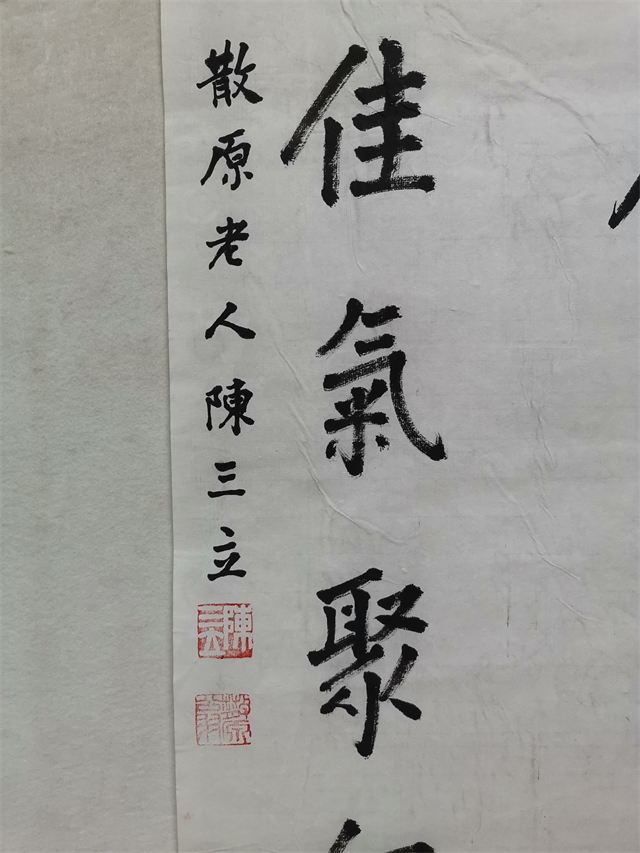 佳氣聚
散原老人陳三立
陳三立